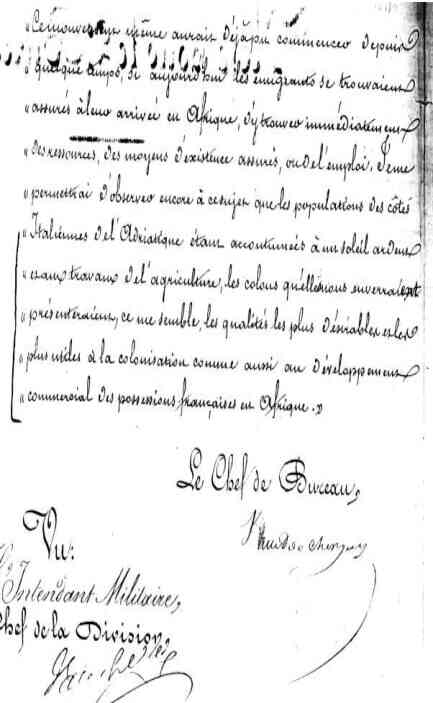 "Ce mouvement même aurait déjà pu commencer depuis
"quelque temps, si aujourd'hui les émigrants se trouvaient
"assurés à leur arrivée en Afrique, d'y trouver immédiatement
"des ressources, des moyens d'éxistence assurés, ou de l'emploi. J'eme
"permettrai d'observer encore à ce sujet que les populations des côtes
"Italiennes de l'Adriatique étant accoutumées à un soleil ardent
"et aux travaux de l'agriculture, les colons qu'elles nous enverraient
"présenteraient, ce me semble, les qualités les plus désirables et les
"plus utiles à la colonisation comme aussi au développement
"commercial des possessions françaises en Afrique."
Le Chef de Bureau,
Vu:
Intendant Militaire,
Chef de la Division,